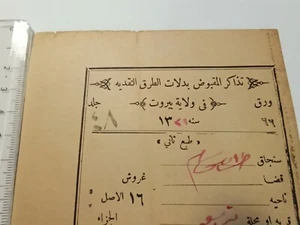 تذاكر المقبوض بدلات الطرق النقديه
ورق ﴿ فى ولاية بيروت ﴾ جلد
٩٦ سنه ١٣٢٦ ٦٨
﴿ طبع ثانى ﴾
سنجاق
قضا غروش
ناحيه ١٦ الاصل
قريه او محلة الجزاء